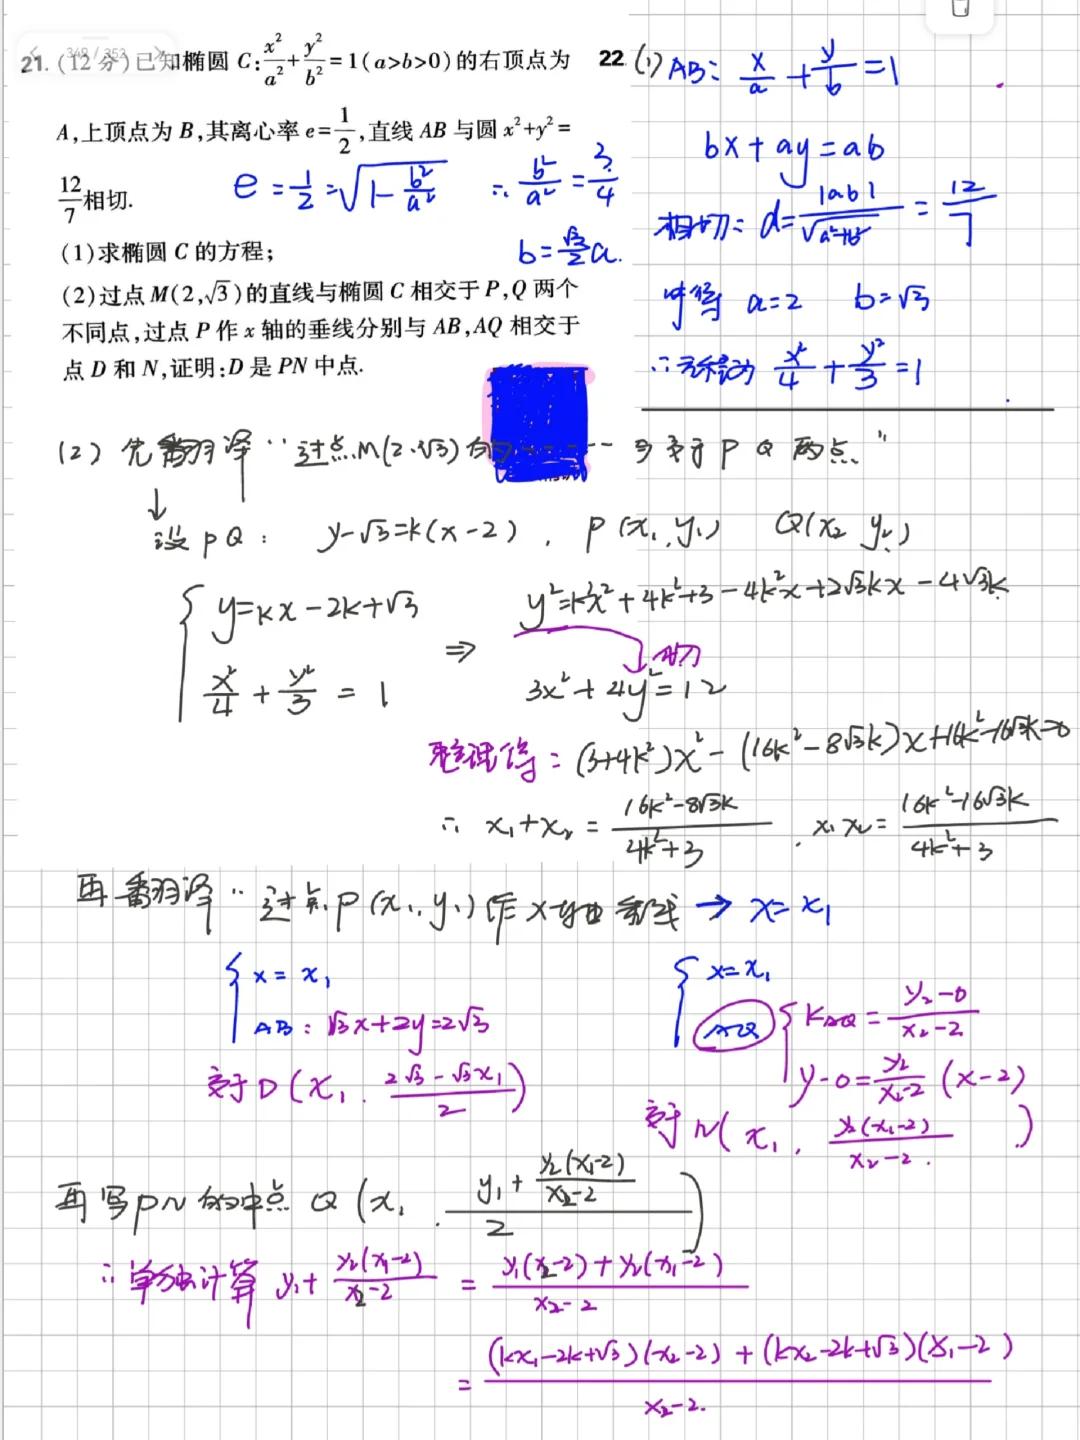 348 / 353
21. (12分)已知椭圆 C: x²/a² + y²/b² = 1(a>b>0)的右顶点为
A,上顶点为 B,其离心率 e = 1/2,直线 AB 与圆 x²+y² =
12/7 相切.
e = 1/2 = √(1 - b²/a²) ∴ b²/a² = 3/4
b = √3/2 a.
(1)求椭圆 C 的方程;
(2)过点 M(2,√3)的直线与椭圆 C 相交于 P,Q 两个
不同点,过点 P 作 x 轴的垂线分别与 AB,AQ 相交于
点 D 和 N,证明:D 是 PN 中点.
22. (1) AB: x/a + y/b = 1
bx + ay = ab
相切: d = |ab|/√(a²+b²) = 12/7
解得 a=2 b=√3
∴方程为 x²/4 + y²/3 = 1
(2) 先翻译 "过点M(2,√3)的 ---- 交于 P Q 两点"
↓
设 PQ: y-√3=k(x-2), P(x₁,y₁) Q(x₂ y₂)
{ y=kx-2k+√3 ⇒ y²=k²x²+4k²+3-4k²x+2√3kx-4√3k
x²/4 + y²/3 = 1 3x²+4y²=12
整理得: (3+4k²)x² - (16k²-8√3k)x+16k²-16√3k=0
∴ x₁+x₂ = (16k²-8√3k)/(4k²+3) . x₁x₂ = (16k²-16√3k)/(4k²+3)
再翻译 "过点P(x₁,y₁)作x轴垂线 → x=x₁
{ x=x₁
AB: √3x+2y=2√3
交于D(x₁, (2√3-√3x₁)/2)
{ x=x₁
AQ { k_AQ = (y₂-0)/(x₂-2)
y-0 = y₂/(x₂-2) (x-2)
交于N(x₁, y₂(x₁-2)/(x₂-2))
再写PN的中点 Q (x₁, (y₁ + y₂(x₁-2)/(x₂-2))/2)
∴单独计算 y₁ + y₂(x₁-2)/(x₂-2) = (y₁(x₂-2)+y₂(x₁-2))/(x₂-2)
= ((kx₁-2k+√3)(x₂-2) + (kx₂-2k+√3)(x₁-2))/(x₂-2).